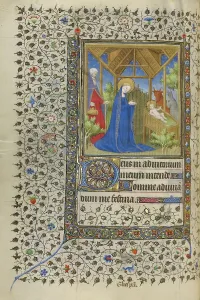 Deus in adiutorium
meum intende
Domine ad adiuuan
dum me festina